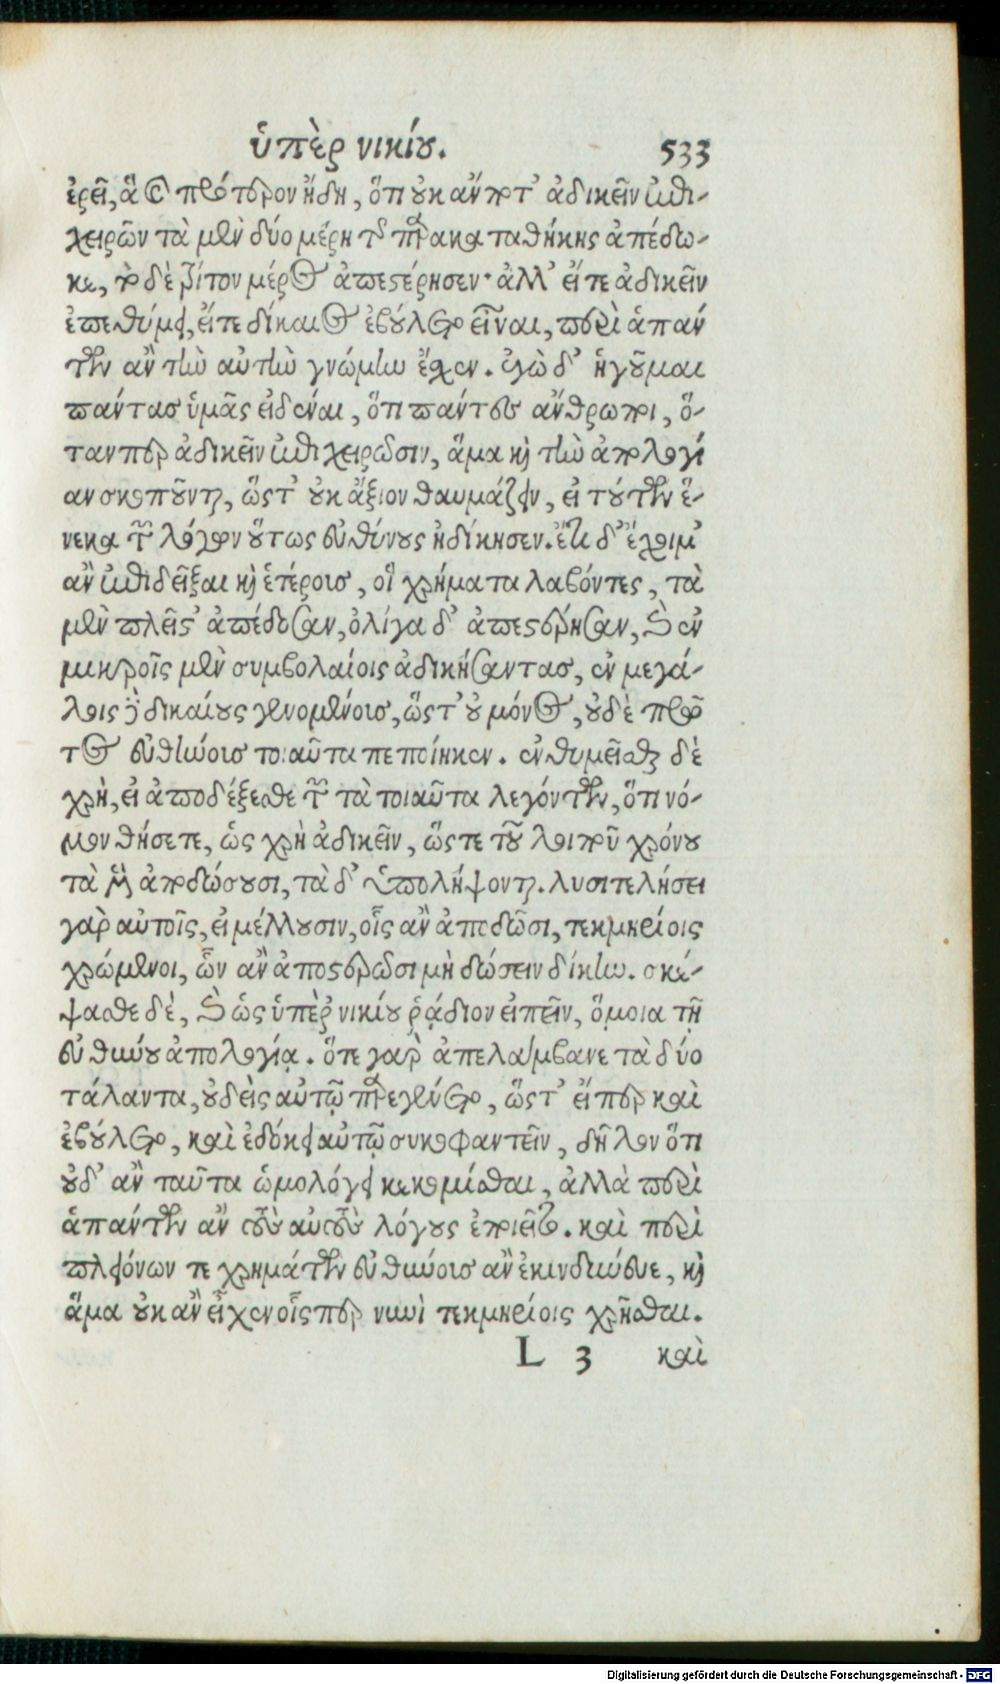 ὑπὲρ νικίου. 533
ἐρεῖ, ἃ καὶ πρότερον ἤδη, ὅτι οὐκ ἄν ποτ' ἀδικεῖν ἐπι-
χειρῶν τὰ μὲν δύο μέρη τῆς παρακαταθήκης ἀπέδω-
κε, τὸ δὲ τρίτον μέρος ἀπεστέρησεν· ἀλλ' εἴτε ἀδικεῖν
ἐπεθύμει, εἴτε δίκαιος ἐβούλετο εἶναι, περὶ ἁπάν
των ἂν τὴν αὐτὴν γνώμην ἔχειν. ἐγὼ δ' ἡγοῦμαι
πάντας ὑμᾶς εἰδέναι, ὅτι πάντες ἄνθρωποι, ὅ-
τανπερ ἀδικεῖν ἐπιχειρῶσιν, ἅμα καὶ τὴν ἀπολογί
αν σκοποῦνται, ὥστ' οὐκ ἄξιον θαυμάζειν, εἰ τούτων ἕ-
νεκα τῶν λόγων οὕτως εὐθύνους ἠδίκησεν. ἔτι δ' ἔχοιμ'
ἂν ἐπιδεῖξαι καὶ ἑτέροις, οἳ χρήματα λαβόντες, τὰ
μὲν πλεῖστ' ἀπέδοσαν, ὀλίγα δ' ἀπεστέρησαν, καὶ ἐν
μικροῖς μὲν συμβολαίοις ἀδικήσαντας, ἐν μεγά-
λοις δὲ δικαίους γενομένοις, ὥστ' οὐ μόνος, οὐδὲ πρῶ
τος εὐθύνοις τοιαῦτα πεποίηκεν. ἐνθυμεῖσθαι δὲ
χρὴ, εἰ ἀποδέξεσθε τῶν τὰ τοιαῦτα λεγόντων, ὅτι νό-
μον θήσετε, ὡς χρὴ ἀδικεῖν, ὥστε τοῦ λοιποῦ χρόνου
τὰ μὲν ἀποδώσουσι, τὰ δ' ὑπολήψονται. λυσιτελήσει
γὰρ αὐτοῖς, εἰ μέλλουσιν, οἷς ἂν ἀποδῶσι, τεκμηρίοις
χρώμενοι, ὧν ἂν ἀποστερῶσι μὴ δώσειν δίκην. σκέ-
ψασθε δὲ, καὶ ὡς ὑπὲρ νικίου ῥᾴδιον εἰπεῖν, ὅμοια τῇ
εὐθύνου ἀπολογίᾳ. ὅτε γὰρ ἀπελάμβανε τὰ δύο
τάλαντα, οὐδεὶς αὐτῷ παρεγένετο, ὥστ' εἴπερ καὶ
ἐβούλετο, καὶ ἐδόκει αὐτῷ συκοφαντεῖν, δῆλον ὅτι
οὐδ' ἂν ταῦτα ὡμολόγει κεκομίσθαι, ἀλλὰ περὶ
ἁπάντων ἂν τοὺς αὐτοὺς λόγους ἐποιεῖτο. καὶ περὶ
πλειόνων τε χρημάτων εὐθύνοις ἂν ἐκινδύνευε, καὶ
ἅμα οὐκ ἂν εἶχεν οἷσπερ νυνὶ τεκμηρίοις χρῆσθαι.
L 3 καὶ
Digitalisierung gefördert durch die Deutsche Forschungsgemeinschaft - DFG